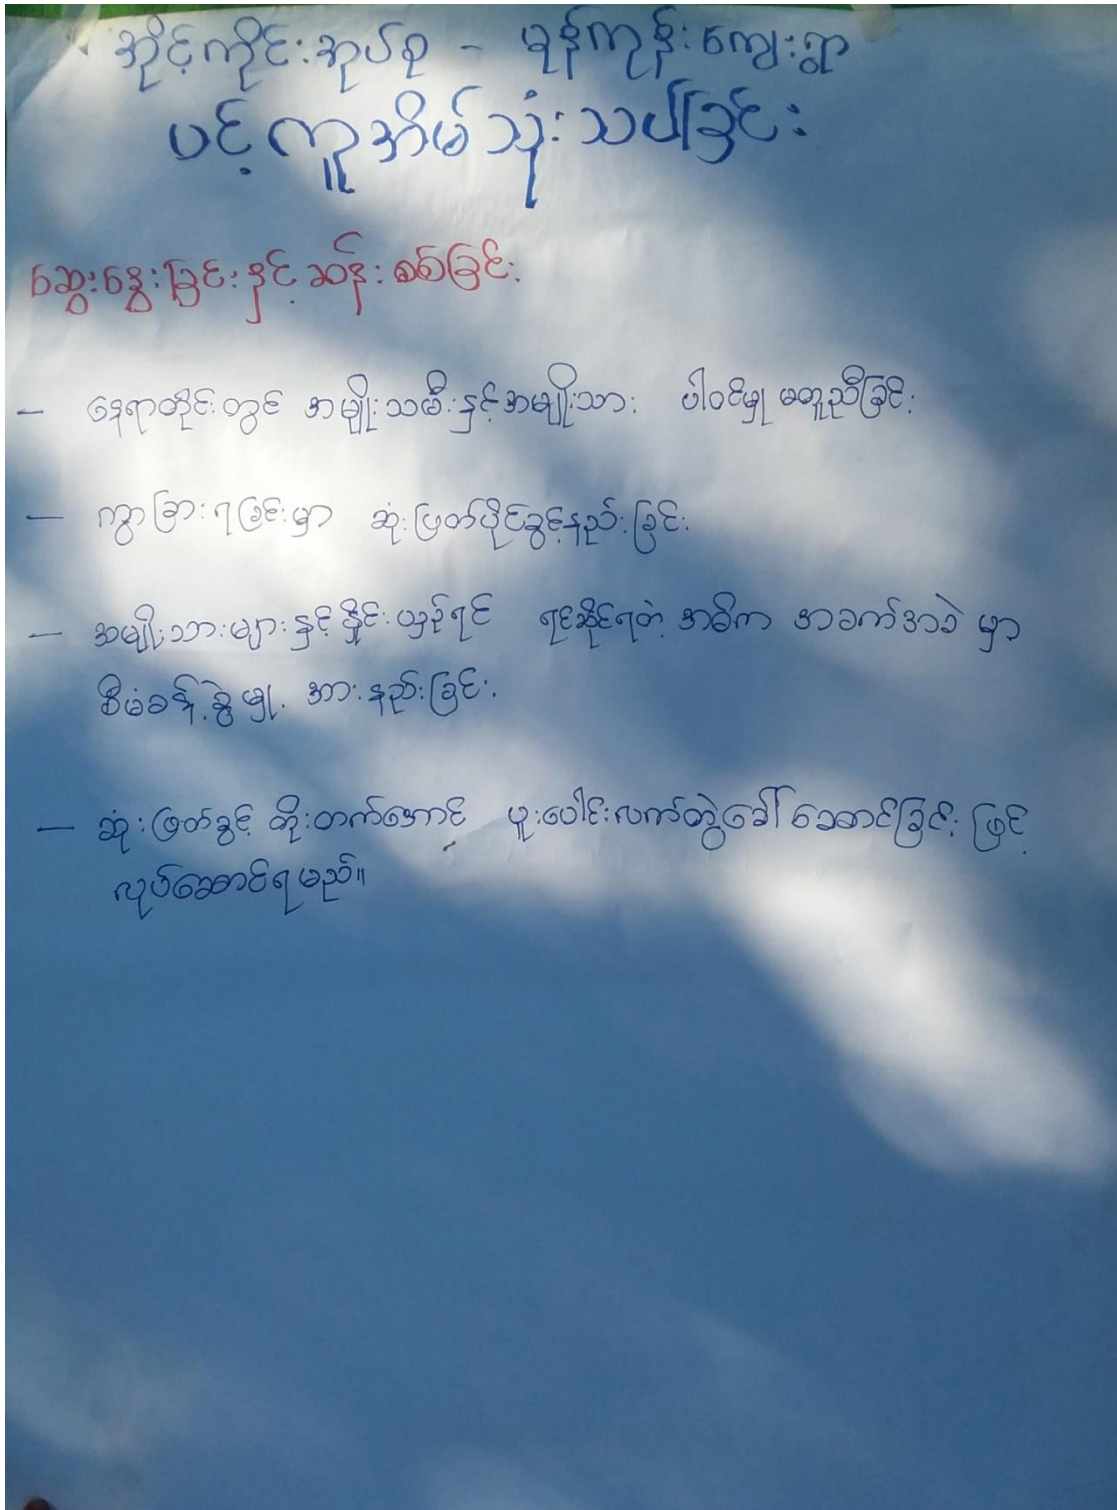 အိုင့်ကိုင်းအုပ်စု - မုန်ကုန်းကျေးရွာ
ပင့်ကူအိမ်သုံးသပ်ခြင်း
ဆွေးနွေးခြင်းနှင့်ဆန်းစစ်ခြင်း
- နေရာတိုင်းတွင် အမျိုးသမီးနှင့်အမျိုးသား ပါဝင်မှု မတူညီခြင်း
- ကွာခြားရခြင်းမှာ ဆုံးဖြတ်ပိုင်ခွင့်နည်းခြင်း
- အမျိုးသားများနှင့်နှိုင်းယှဉ်ရင် ရင်ဆိုင်ရတဲ့ အဓိက အခက်အခဲ မှာ
စီမံခန့်ခွဲမှု အားနည်းခြင်း
- ဆုံးဖြတ်ခွင့် တိုးတက်အောင် ပူးပေါင်းလက်တွဲခေါ်ဆောင်ခြင်းဖြင့်
လုပ်ဆောင်ရမည်။